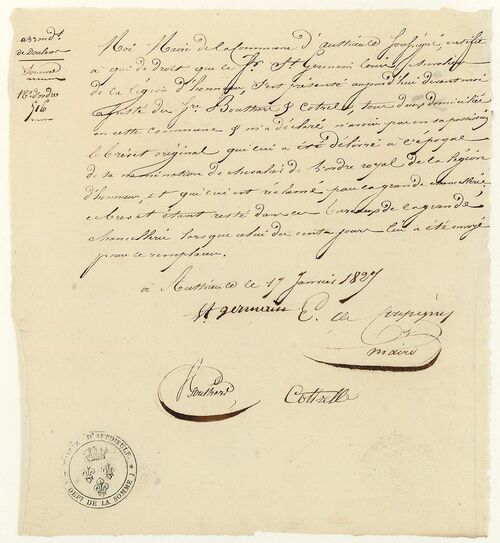 arrondt.
de Doullens
Somme
Nos Maire de la commune d'authieule soussigné, certifie
à qui de droit que le Sr. St Germain Louis, chevalier
de la légion d'honneur, s'est présenté aujourd'hui devant moi
assisté des Srs. Bouthors & Cotrel, tous deux domiciliés
en cette commune & m'a déclaré n'avoir pas en sa possession
le brévet original qui lui a été délivré à l'époque
de sa nomination de chevalier de l'ordre royal de la légion
d'honneur, et qui lui est réclamé par la grande chancellerie
ce brevet étant resté dans les bureaux de la grande
chancellerie lorsque celui des cents jours lui a été envoyé
pour le remplacer.
à Authieule le 17 Janvier 1827
St germain
E. de
maire
Bouthors
Cottrelle
MAIRIE D'AUTHIEULE
( DEPT DE LA SOMME )